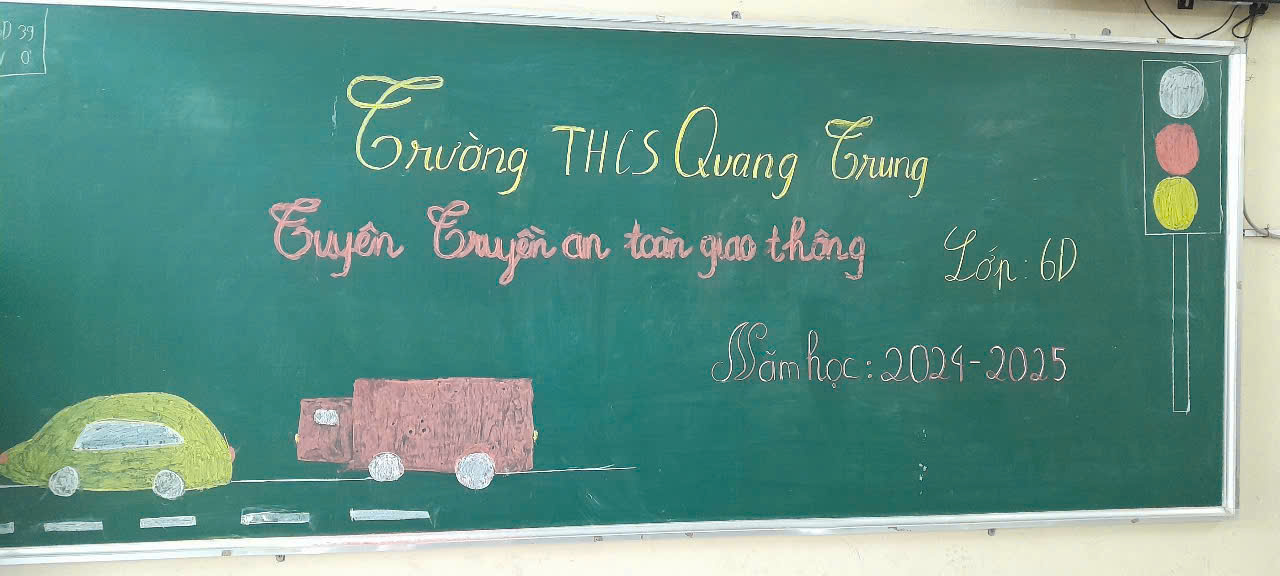 Trường THCS Quang Trung
Tuyên Truyền an toàn giao thông
Lớp: 6D
Năm học: 2024-2025
39